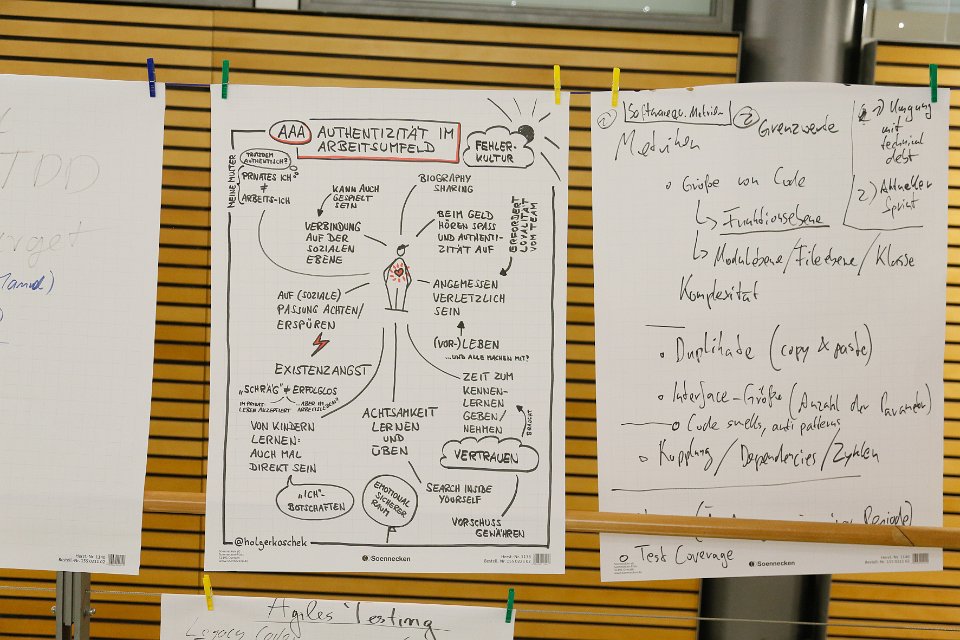 TDD
AAA
AUTHENTIZITÄT IM
ARBEITSUMFELD
FEHLER-
KULTUR
MEINE MUTTER
TROTZDEM
AUTHENTISCH?
PRIVATES ICH
≠
ARBEITS-ICH
KANN AUCH
GESPIELT
SEIN
BIOGRAPHY
SHARING
VERBINDUNG
AUF DER
SOZIALEN
EBENE
BEIM GELD
HÖREN SPASS
UND AUTHENTI-
ZITÄT AUF
ERFORDERT
LOYALITÄT
VOM TEAM
AUF (SOZIALE)
PASSUNG ACHTEN/
ERSPÜREN
ANGEMESSEN
VERLETZLICH
SEIN
(VOR-)LEBEN
...UND ALLE MACHEN MIT?
EXISTENZANGST
„SCHRÄG" ≠ ERFOLGLOS
IM PRIVAT-
LEBEN AKZEPTIERT
...ABER IM
ARBEITSLEBEN?
ZEIT ZUM
KENNEN-
LERNEN
GEBEN/
NEHMEN
BRAUCHT
VON KINDERN
LERNEN:
AUCH MAL
DIREKT SEIN
ACHTSAMKEIT
LERNEN
UND
ÜBEN
VERTRAUEN
„ICH"-
BOTSCHAFTEN
EMOTIONAL
SICHERER
RAUM
SEARCH INSIDE
YOURSELF
VORSCHUSS
GEWÄHREN
@holgerkoschek
Soennecken
2) Softwarequ. Metriken 2)
Metriken
Grenzwerte
1) Umgang
mit
technical
debt
2) Aktueller
Sprint
Größe von Code
↳ Funktionsebene
↳ Modulebene/Fileebene/Klasse
Komplexität
Duplikate (copy & paste)
Interface-Größe (Anzahl der Parameter)
Code smells, anti patterns
Kopplung/Dependencies/Zyklen
Periode)
Test Coverage
Soennecken
Agiles Testing
Legacy Code